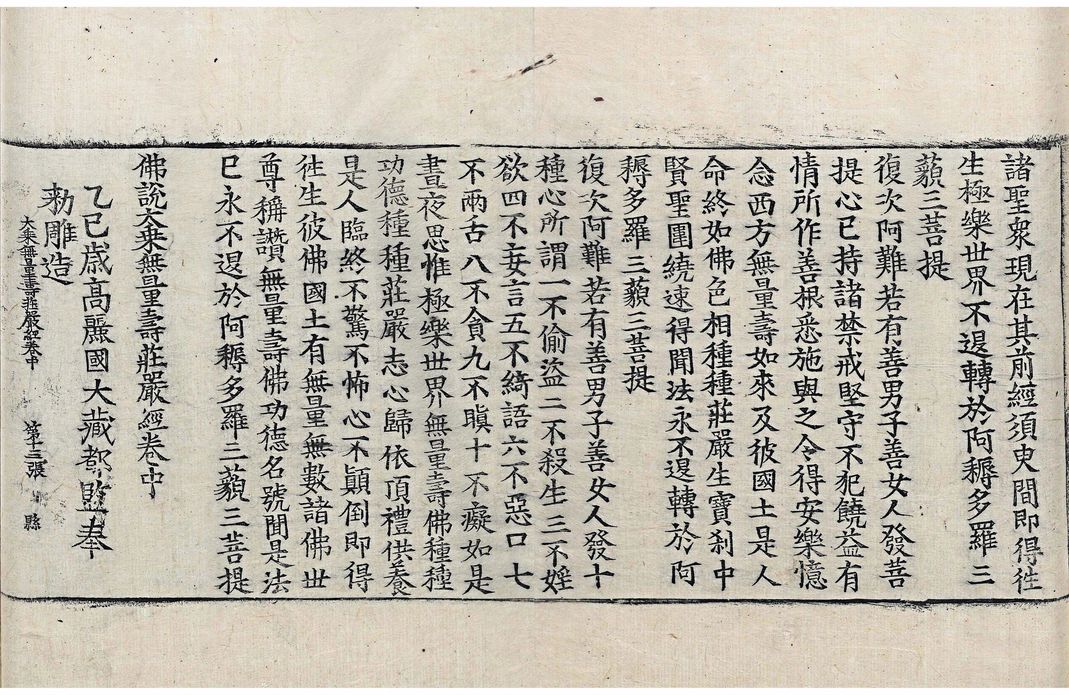 諸聖衆現在其前經須臾間即得徃
生極樂世界不退轉於阿耨多羅三
藐三菩提
復次阿難若有善男子善女人發菩
提心已持諸禁戒堅守不犯饒益有
情所作善根悉施與之令得安樂憶
念西方無量壽如來及彼國土是人
命終如佛色相種種莊嚴生寶刹中
賢聖圍繞速得聞法永不退轉於阿
耨多羅三藐三菩提
復次阿難若有善男子善女人發十
種心所謂一不偷盜二不殺生三不婬
欲四不妄言五不綺語六不惡口七
不兩舌八不貪九不瞋十不癡如是
晝夜思惟極樂世界無量壽佛種種
功德種種莊嚴志心歸依頂禮供養
是人臨終不驚不怖心不顛倒即得
徃生彼佛國土有無量無數諸佛世
尊稱讚無量壽佛功德名號聞是法
已永不退於阿耨多羅三藐三菩提
佛說大乘無量壽莊嚴經卷中
乙巳歲高麗國大藏都監奉
勑雕造
大乘無量壽莊嚴經卷中 第十三張 縣